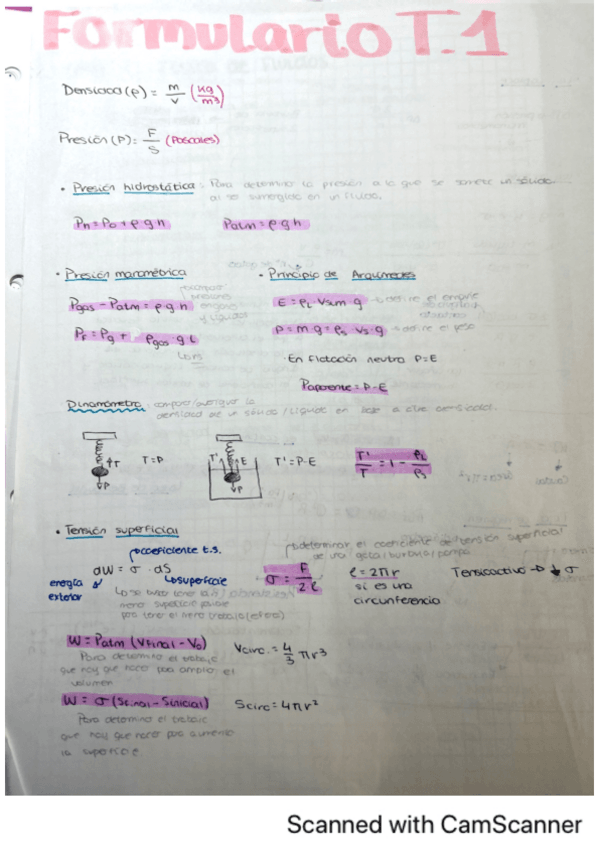 Formulario T.1
Densidad (ρ) = m/V (kg/m³)
Presión (P) = F/S (Pascales)
• Presión hidrostática: Para determinar la presión a la que se somete un sólido
al ser sumergido en un fluido.
Pn = Po + ρ g h    Patm = ρ g h
• Presión manométrica
Pgas - Patm = ρ g h
y líquidos
• Principio de Arquímedes
E = ρL · Vsum · g → define el empuje
P = m · g = ρs · Vs · g → define el peso
· En flotación neutra P=E
Paparente = P-E
Dinamómetro: comparar/averiguar la
densidad de un sólido / líquido en base a otra densidad.
↑T
↓P
T=P
T' ↑E
↓P
T'=P-E
T'/T = 1 - ρL/ρs
• Tensión superficial
↱coeficiente t.s.
dW = σ · dS
↳superficie
energía
exterior
para tener el menor trabajo (esfera)
↱determinar el coeficiente de tensión superficial
de una gota / burbuja / pompa
σ = F/2ℓ
ℓ = 2πr
si es una
circunferencia
Tensioactivo → ↓ σ
W = Patm (Vfinal - Vo)
Para determinar el trabajo
que hay que hacer para ampliar el
volumen
Vcirc. = 4/3 πr³
W = σ (Sfinal - Sinicial)
Para determinar el trabajo
que hay que hacer para aumentar
la superficie
Scirc = 4πr²
Scanned with CamScanner